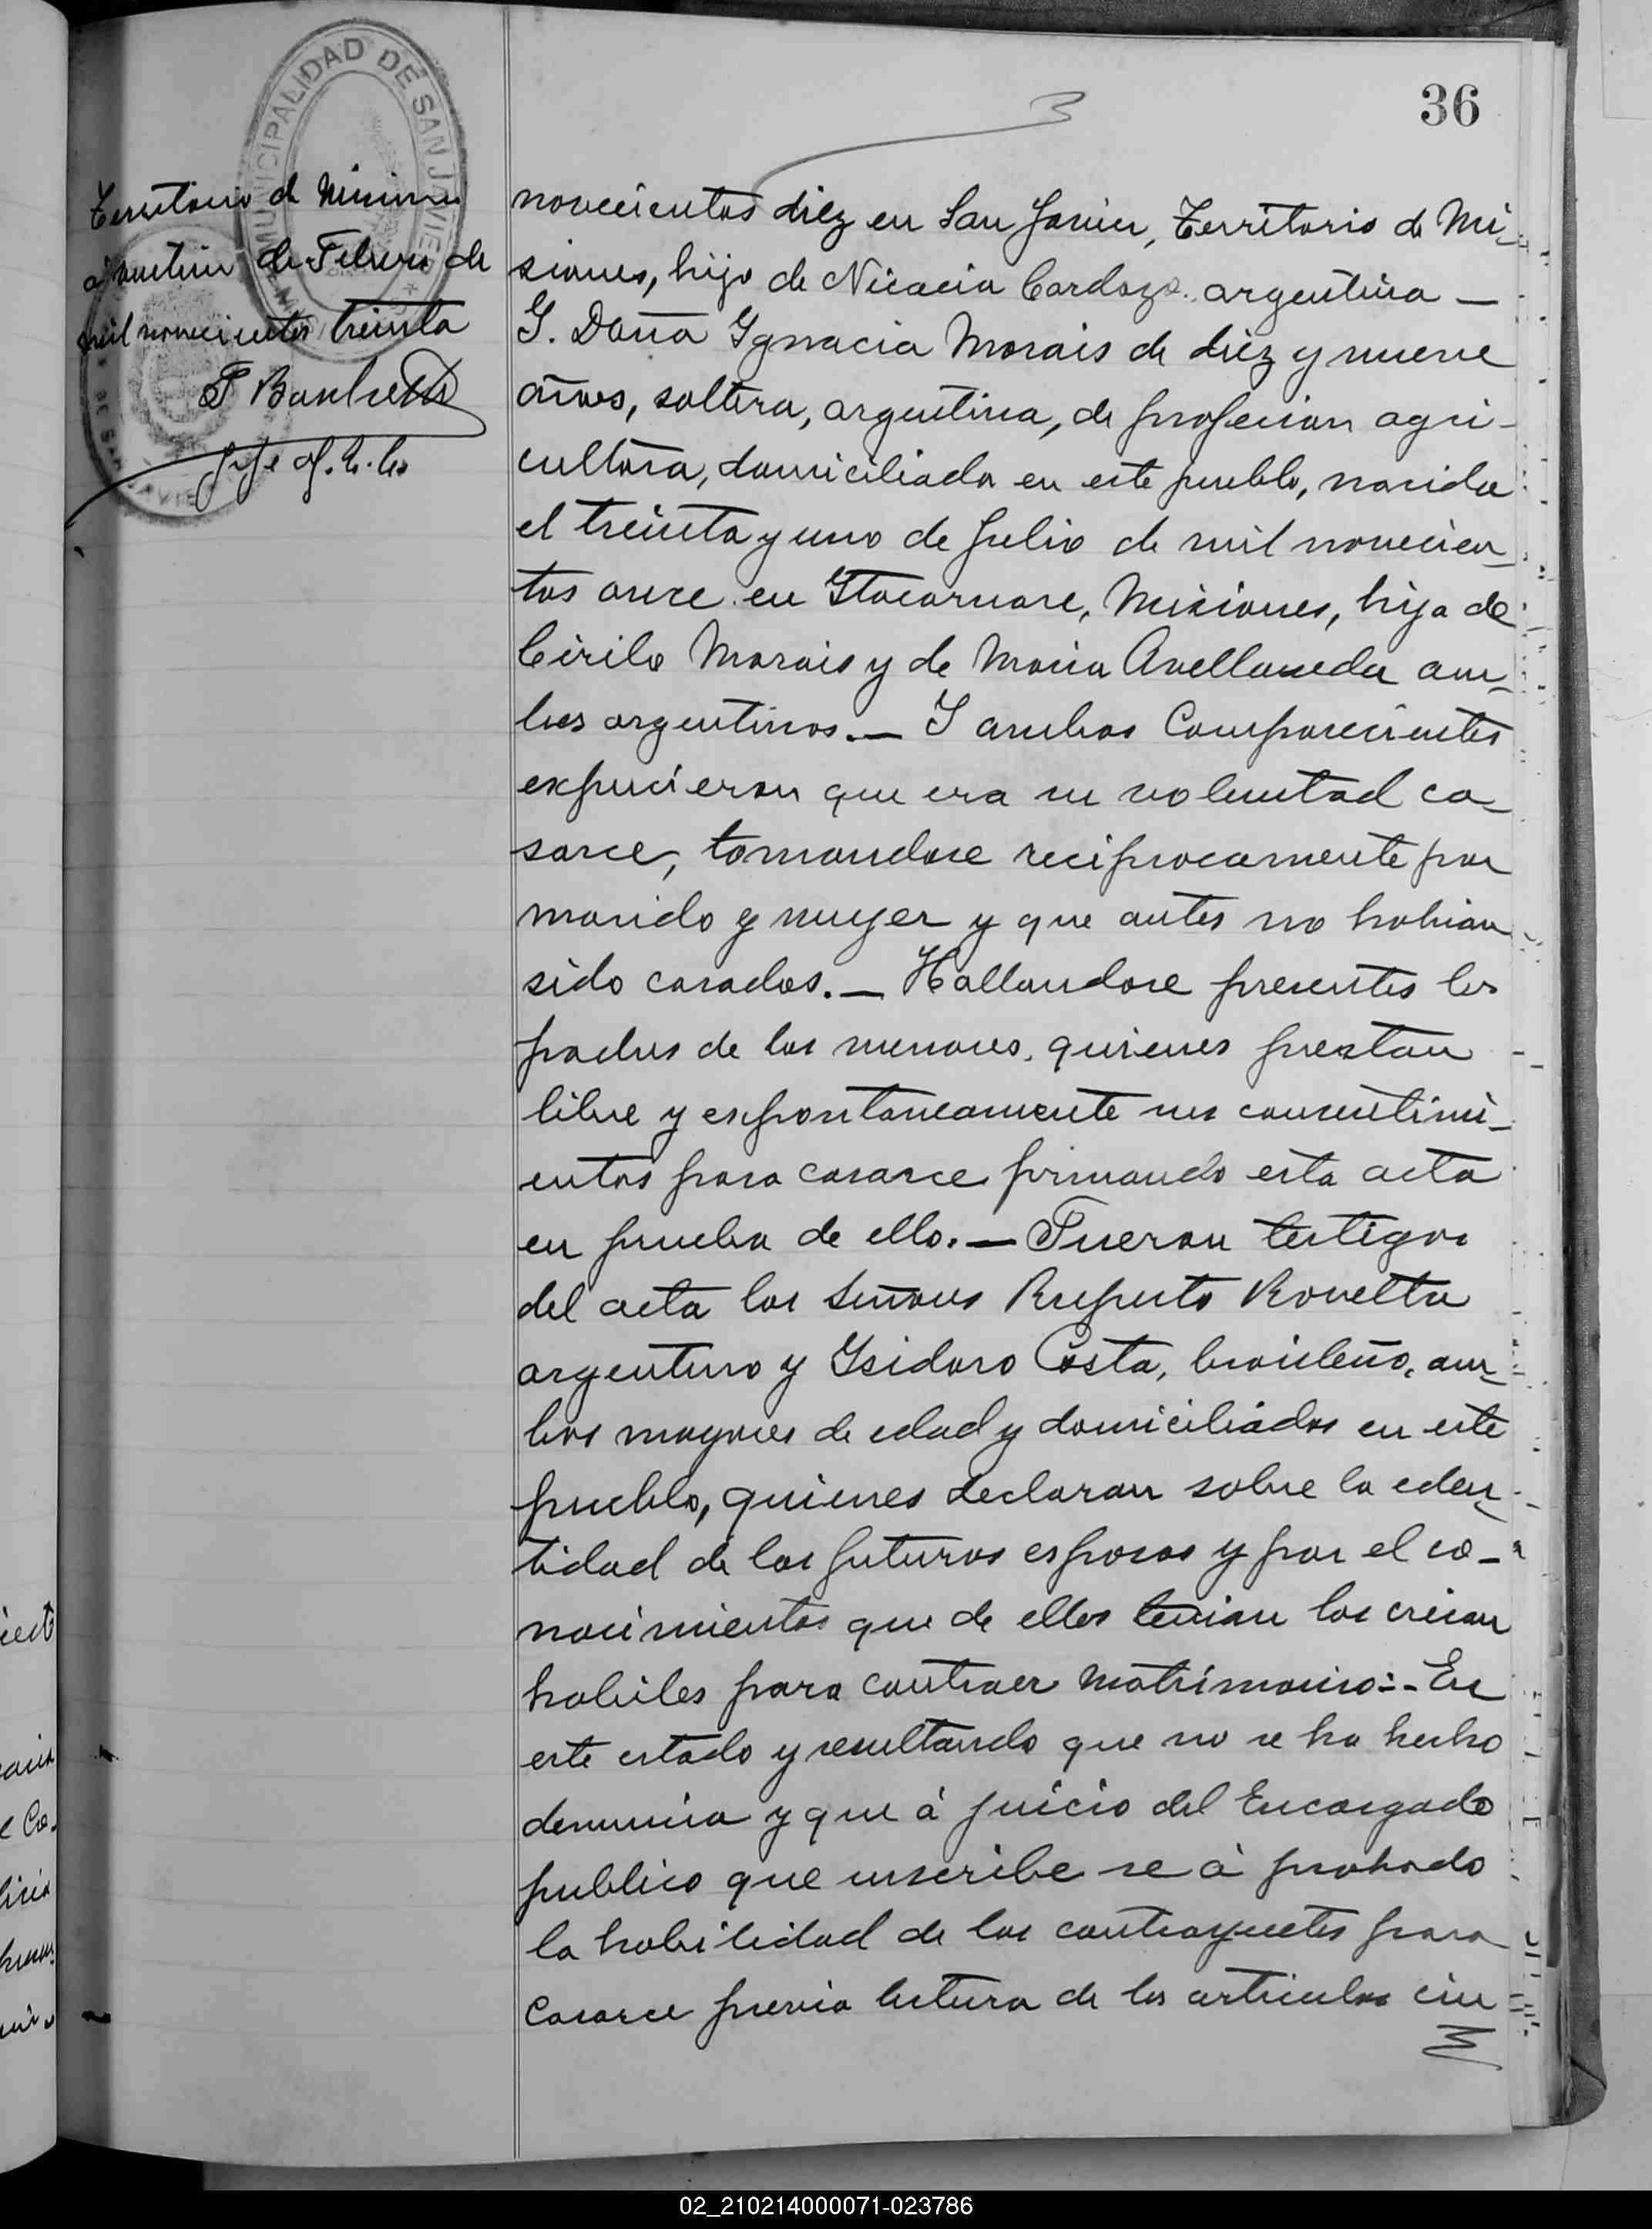 36
MUNICIPALIDAD DE SAN JAVIER
Territorio de Misiones
a de Febrero de
mil novecientos treinta
novecientos diez en San Javier, Territorio de Mi-
siones, hijo de Nicacia Cardozo. argentina —
Y. Doña Ygnacia Morais de diez y nueve
años, soltera, argentina, de profecion agri-
cultora, domiciliada en este pueblo, nacida
el treinta y uno de Julio de mil novecien-
tos once en Itacaruare, Misiones, hija de
Cirilo Morais y de Maria Avellaneda am-
bos argentinos.— Y ambos Comparecientes
expucieron que era su voluntad ca-
sarce, tomandose reciprocamente por
marido y muger y que antes no habian
sido casados.— Hallandose presentes los
padres de los menores, quienes prestan
libre y espontaneamente sus consentimi-
entos para casarce firmando esta acta
en prueba de ello.— Fueron testigos
del acta los señores Ruperto Rovetta
argentino y Ysidoro Costa, brasileño, am-
bos mayores de edad y domiciliados en este
pueblo, quienes declaran sobre la eden-
tidad de los futuros esposos y por el co-
nocimientos que de ellos tenian los creian
habiles para contraer matrimonio:- En
este estado y resultando que no se ha hecho
denuncia y que à juicio del Encargado
publico que suscribe se à probado
la habilidad de los contrayentes para
Casarce previa letura de los articulos cin
02_210214000071-023786